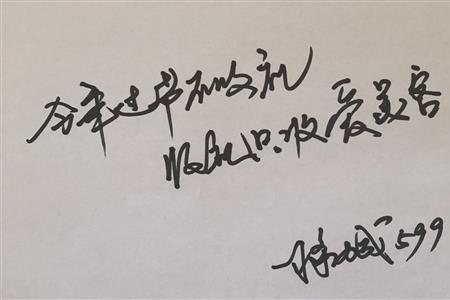 今年过节不收礼
收礼只收爱美客
599